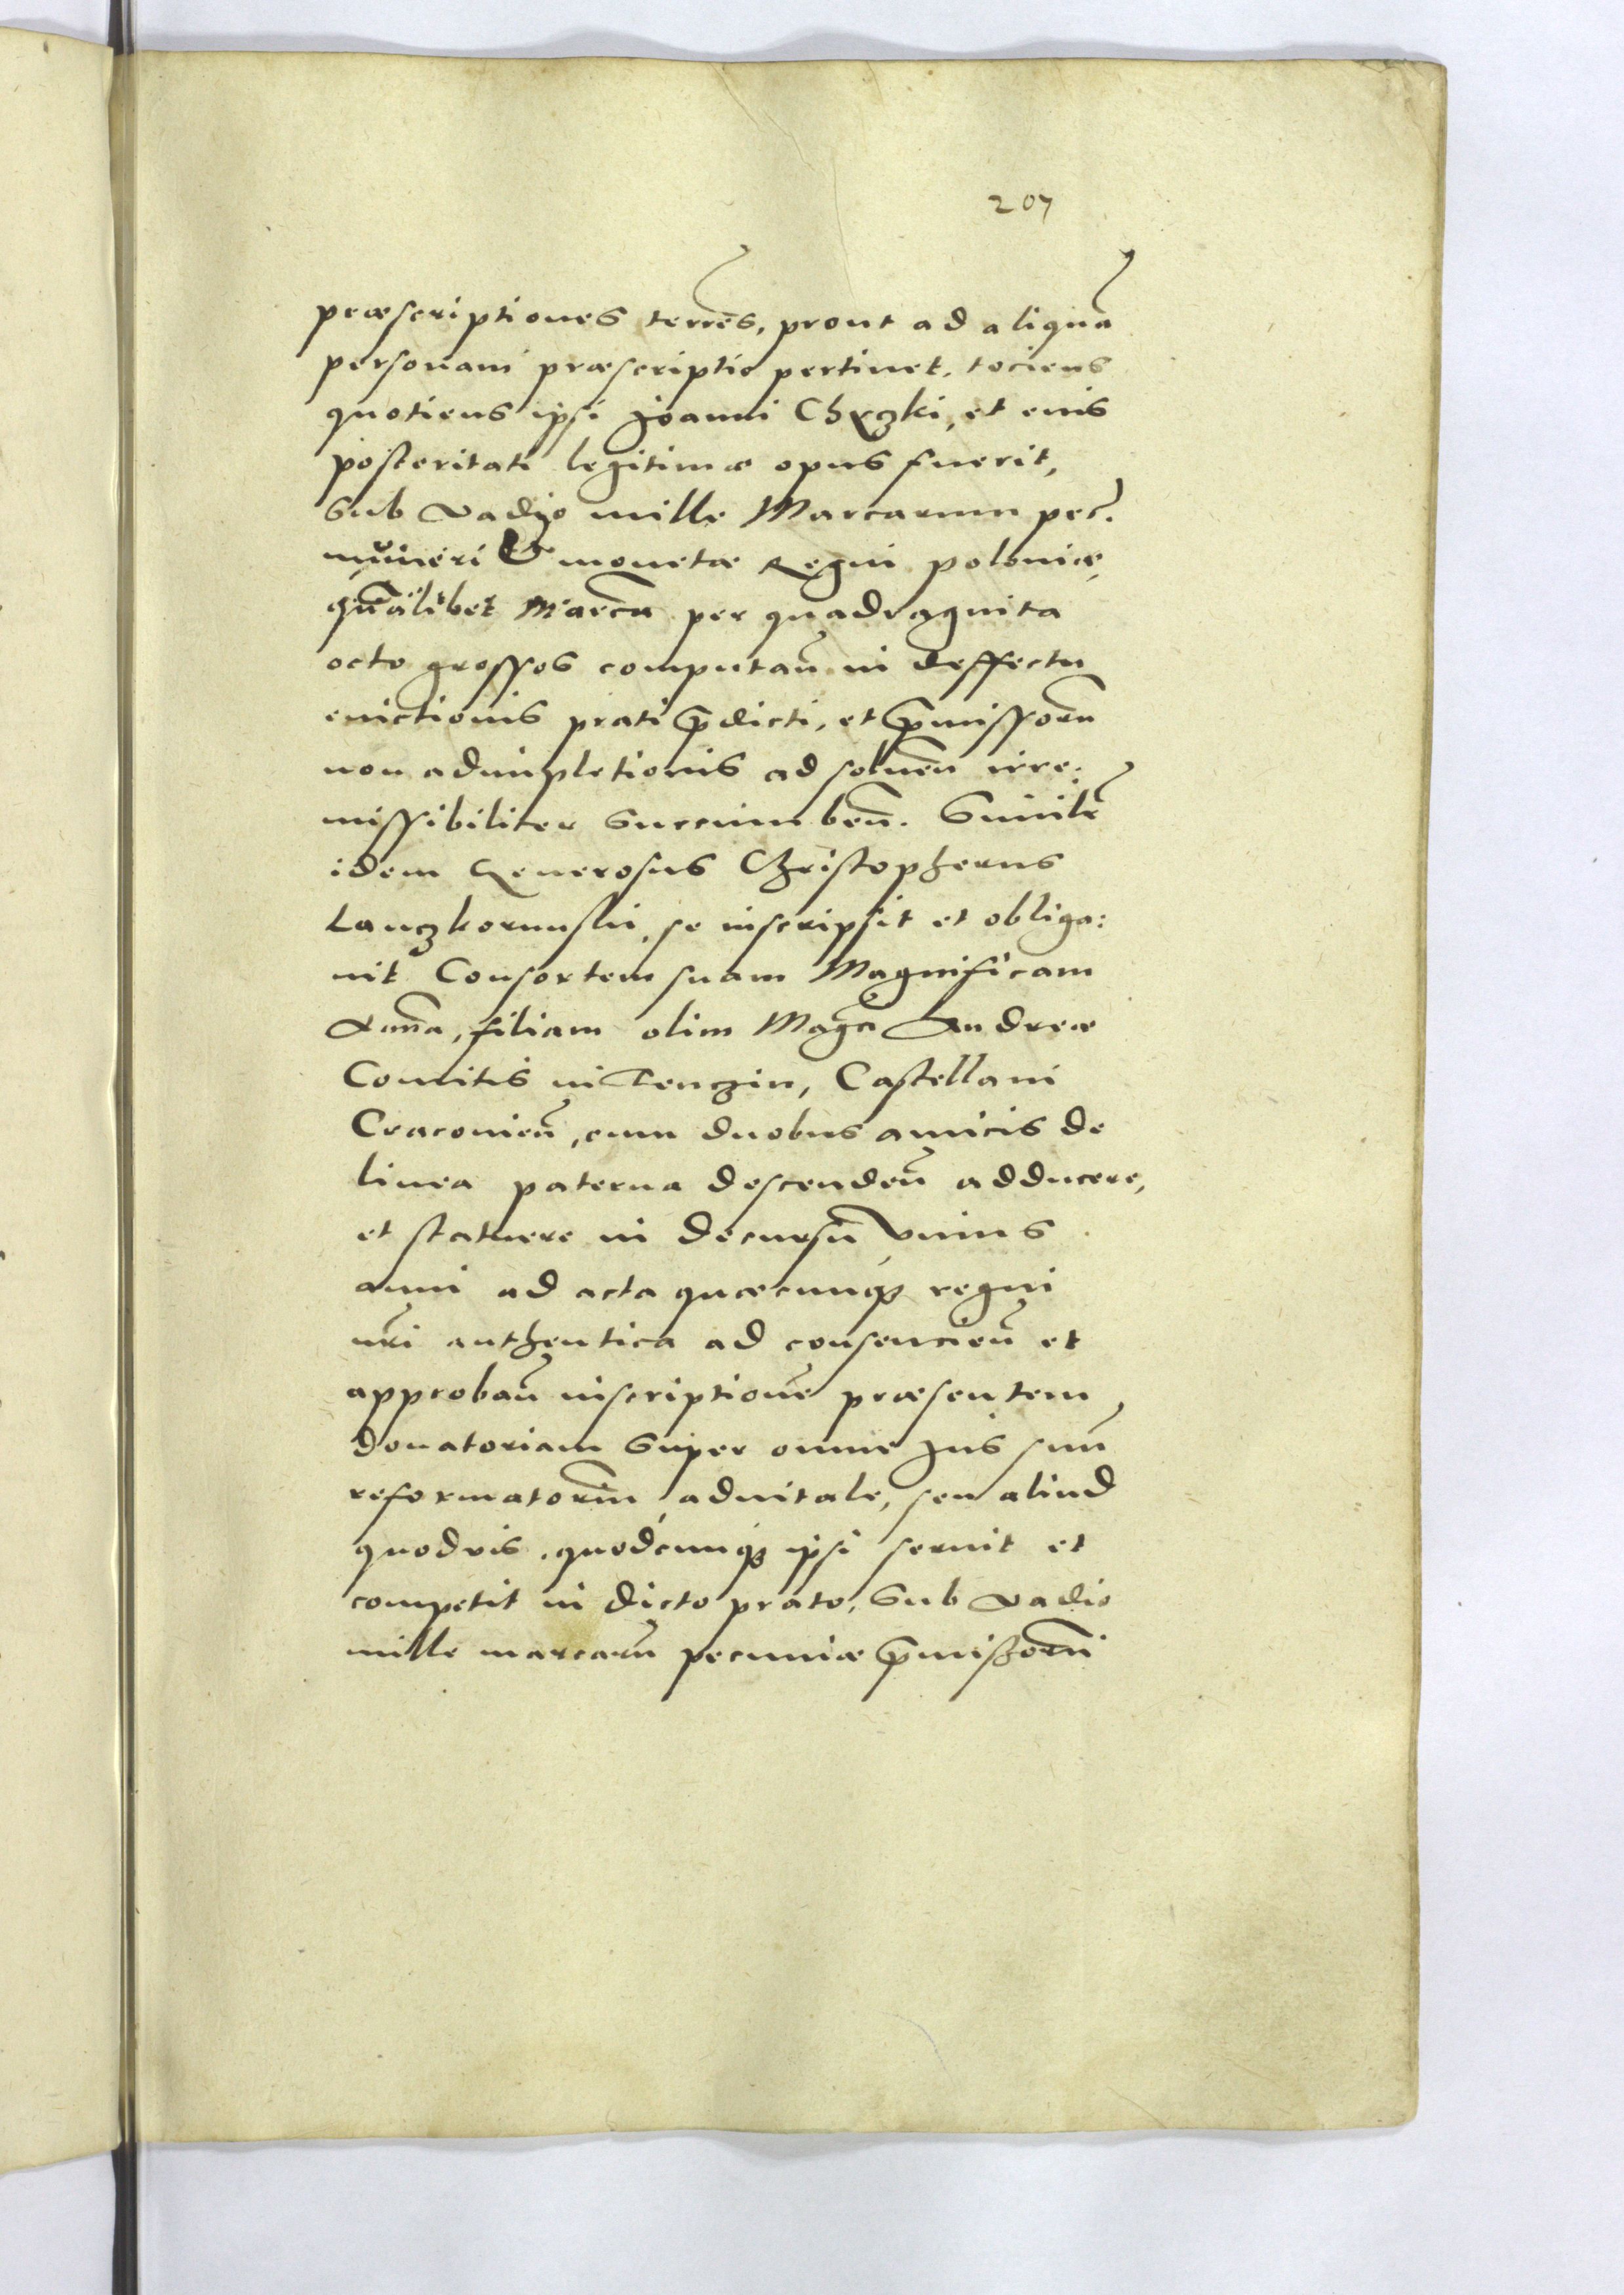 207
præscriptiones terrēs, prout ad aliquā
personam præscriptio pertinet, tociens
quotiens ipsi Joanni Chęczki, et eius
posteritati legitimæ opus fuerit,
Sub vadio mille Marcarum pec.
numeri & monetæ Regni poloniæ,
quālibet Marcā per quadraguita
octo grossos computan̄ in deffectu
euictionis prati p̄dicti, et p̄missorū
non adimpletionis ad soluen̄ irre:
missibiliter Succumben̄. Similr̄
idem Generosus Christopherus
Lanczkorunski, se inscripsit et obliga:
uit Consortem suam Magnificam
Annā, filiam olim Magci Andreæ
Comitis in Tenczin, Castellani
Cracouien̄, cum duobus amicis de
linea paterna descenden̄ adducere,
et statuere in decursū vnius
anni ad acta quæcunqȝ regni
nr̄i authentica ad consencien̄ et
approban̄ inscriptionē præsentem
donatoriam Super omne Jus suū
reformatoriū, aduitale, seu aliud
quoduis, quodcunqȝ ipsi seruit et
competit in dicto prato, Sub vadio
mille marcarū pecuniæ p̄missorū